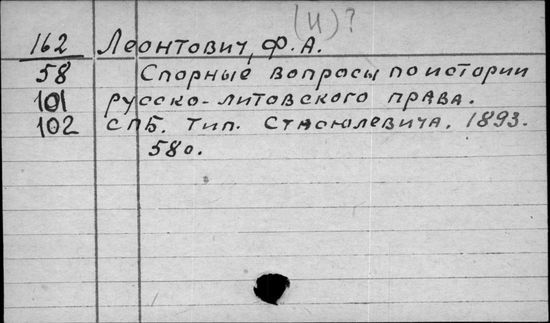 (И)?
162 Леонтович, Ф. А.
58 Спорные вопросы по истории
101 русско-литовского права.
102 СПБ. Тип. Стасюлевича. 1893.
58 с.